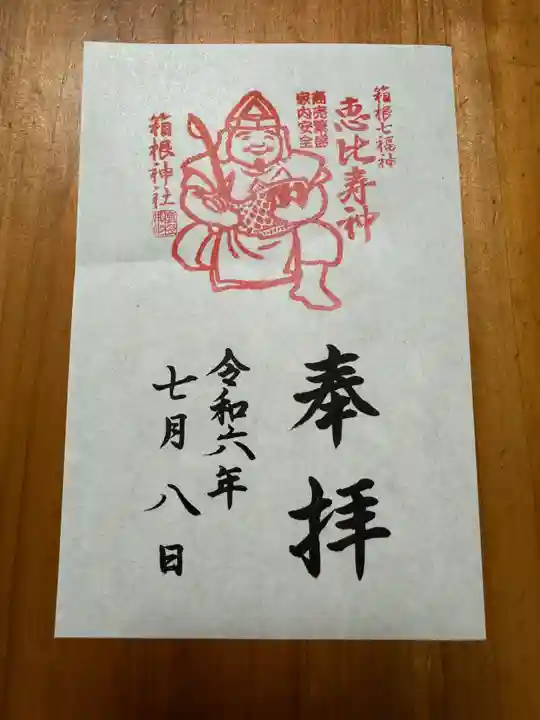 箱根七福神
恵比寿神
商売繁昌
家内安全
箱根神社
奉拝
令和六年
七月八日